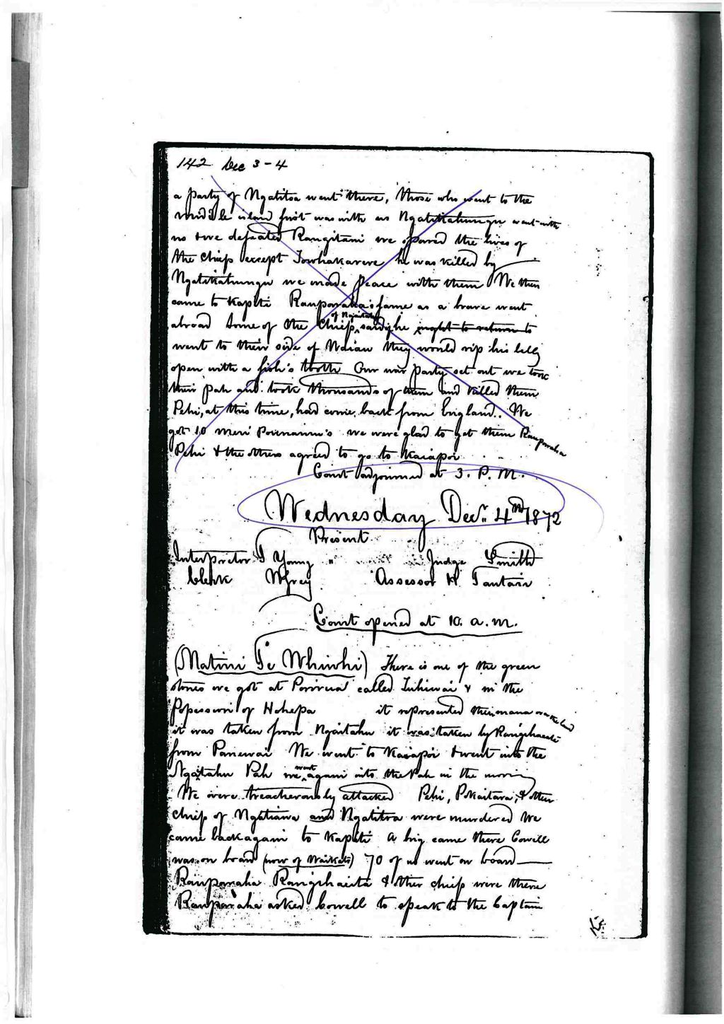 142 Dec 3-4
a party of Ngatitoa went there, those who went to the
middle island first was with us Ngatikahungu went with
us + we defeated Rangitani we spared the lives of
the chiefs except he was killed by
Ngatikahungu we made peace with them We then
came to Kapiti Rauparaha's fame as a brave went
abroad Some of the Chiefs of Ngaitahu said, he ought to return to
went to their side of Waiau they would rip his belly
open with a fish's tooth Our war party set out we took
their pah and took thousands of them and killed them
Pehi, at this time, had come back from England.. We
got 10 Meri Pounamu's we were glad to get them Rauparaha
Pehi + the others agreed to go to Kaiapoi
Court adjourned at 3. P.M.
Wednesday Decr. 4th 1872
Present
Interpreter T Young " Judge Smith
Clerk W Grey Assessor H Tautari
Court opened at 10. a.m.
(Matini Te Whiwhi) There is one of the green
stones we got at Porirua called + in the
Possession of Hohepa it represented their mana over the land
it was taken from Ngaitahu it was taken by Rangihaeata
from We went to Kaiapoi + went into the
Ngaitahu Pah we went again into the Pah in the morning
We were treacherously attacked Pehi, Pokaitara, + other
chiefs of Ngatiawa and Ngatitoa were murdered We
came back again to Kapiti A brig came there Cowell
was on board (now of Waikato) 70 of us went on board
Rauparaha Rangihaeata + other chiefs were there
Rauparaha asked Cowell to speak to the Captain